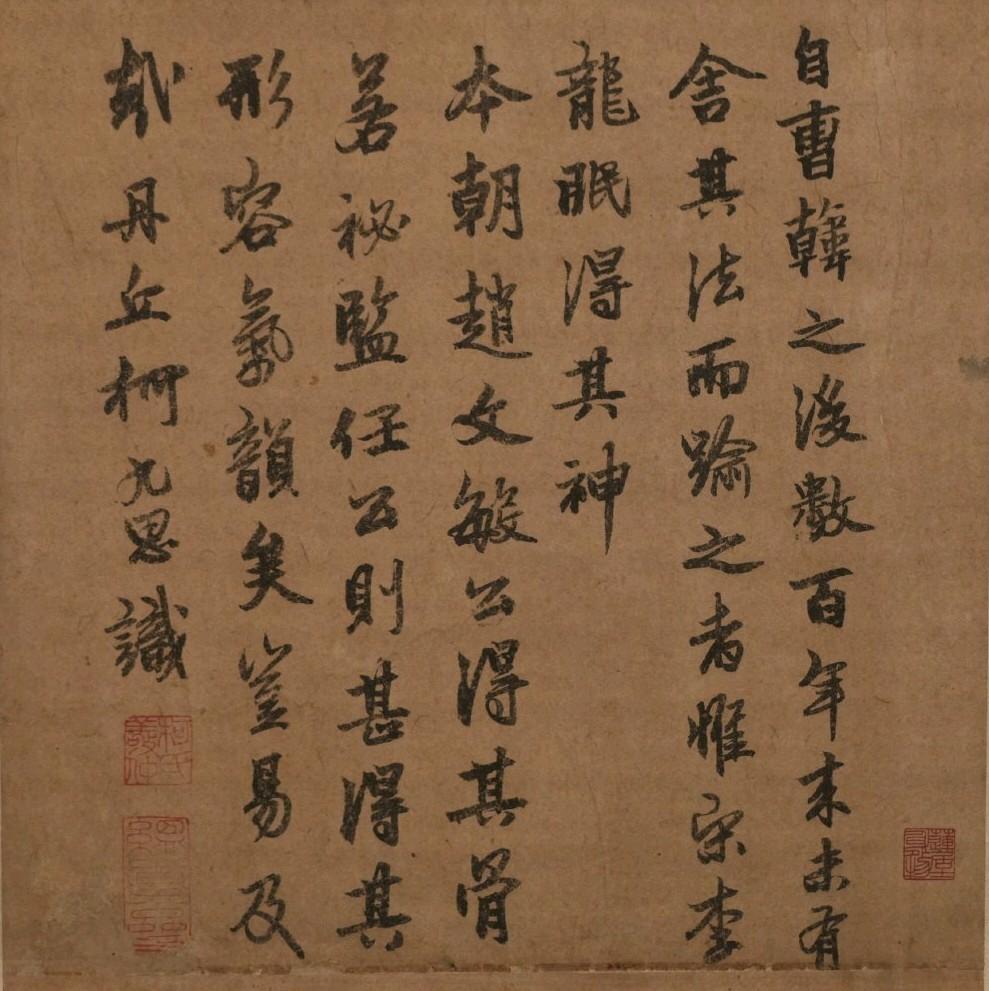 自曹韓之後數百年來未有
舍其法而踰之者惟宋李
龍眠得其神
本朝趙文敏公得其骨
若祕監任公則甚得其
形容氣韻矣豈易及
哉丹丘柯九思識
柯氏敬仲